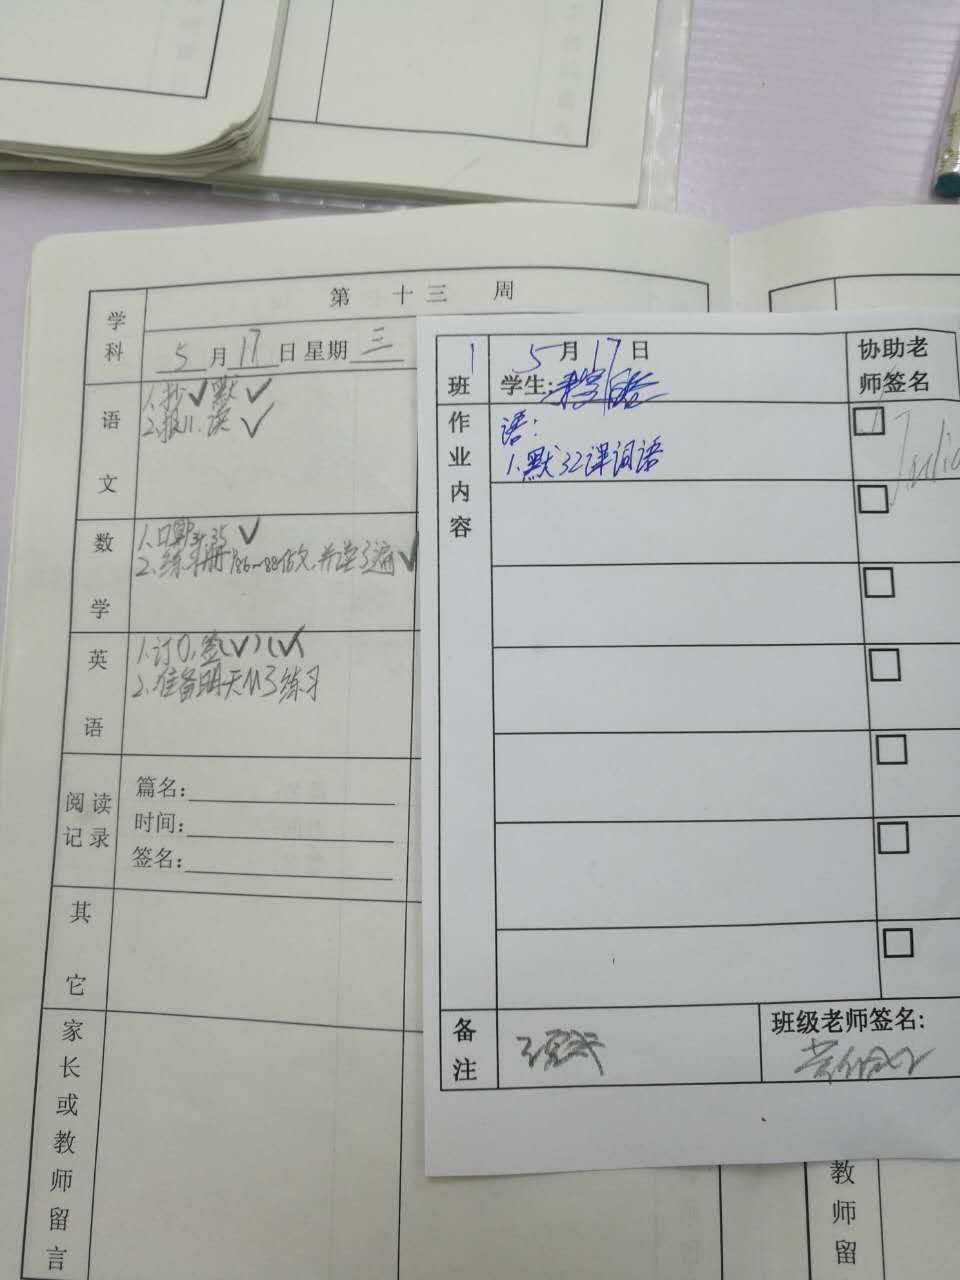 第 十三 周
学科
5月17日 星期三
语文
1.抄✓默✓
2.报11.读✓
数学
1.口算P35✓
2.练习册P86~88 并读3遍✓
英语
1.订 签(✓)(✓
2.准备明天M3练习
阅读记录
篇名:
时间:
签名:
其它
家长或教师留言
1班
5月17日
学生:
协助老师签名
作业内容
语:
1.默32课词语
Julia
备注
班级老师签名:
教师留